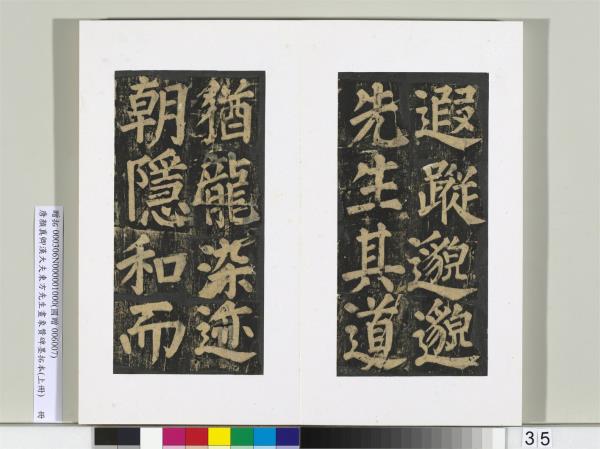 遐蹤邈邈
先生其道
猶龍染迹
朝隱和而
贈拓000306N000001000(國贈006007)
唐顏真卿漢大夫東方先生畫象贊碑墨拓本(上冊) 冊
35